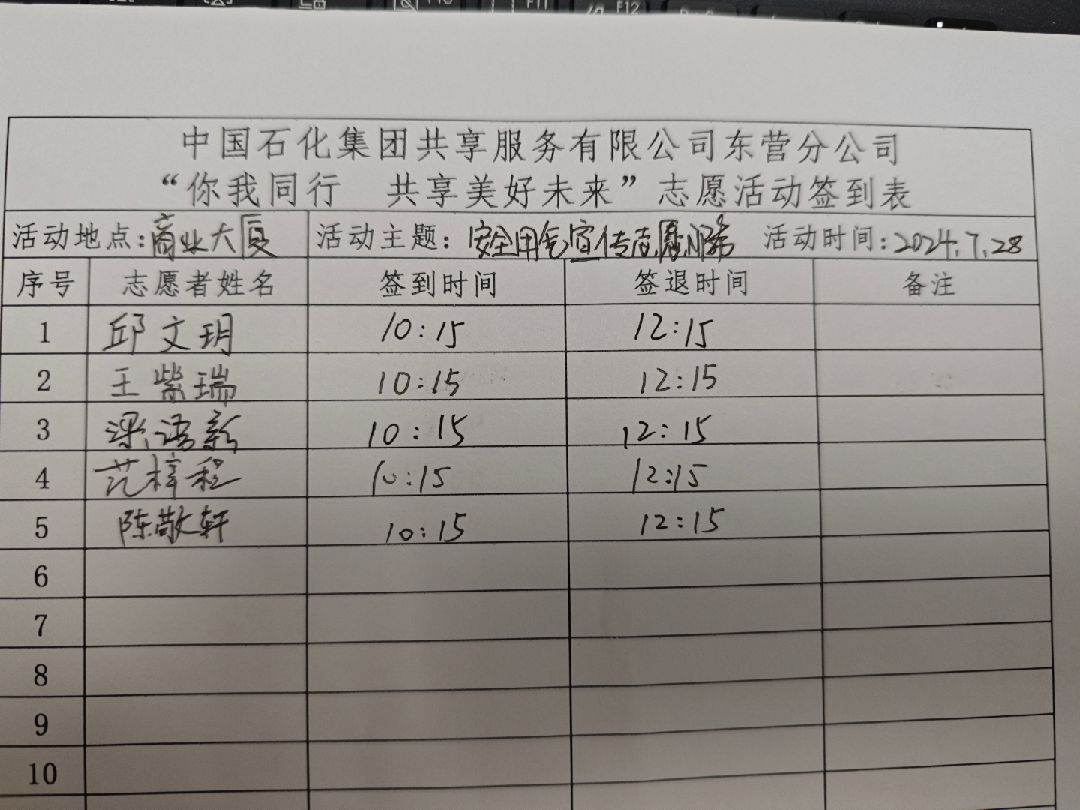 中国石化集团共享服务有限公司东营分公司
“你我同行 共享美好未来”志愿活动签到表
活动地点:商业大厦 活动主题:安全用气宣传志愿服务 活动时间:2024.7.28
序号 志愿者姓名 签到时间 签退时间 备注
1 邱文玥 10:15 12:15
2 王紫瑞 10:15 12:15
3 梁语新 10:15 12:15
4 范梓程 10:15 12:15
5 陈敬轩 10:15 12:15
6
7
8
9
10